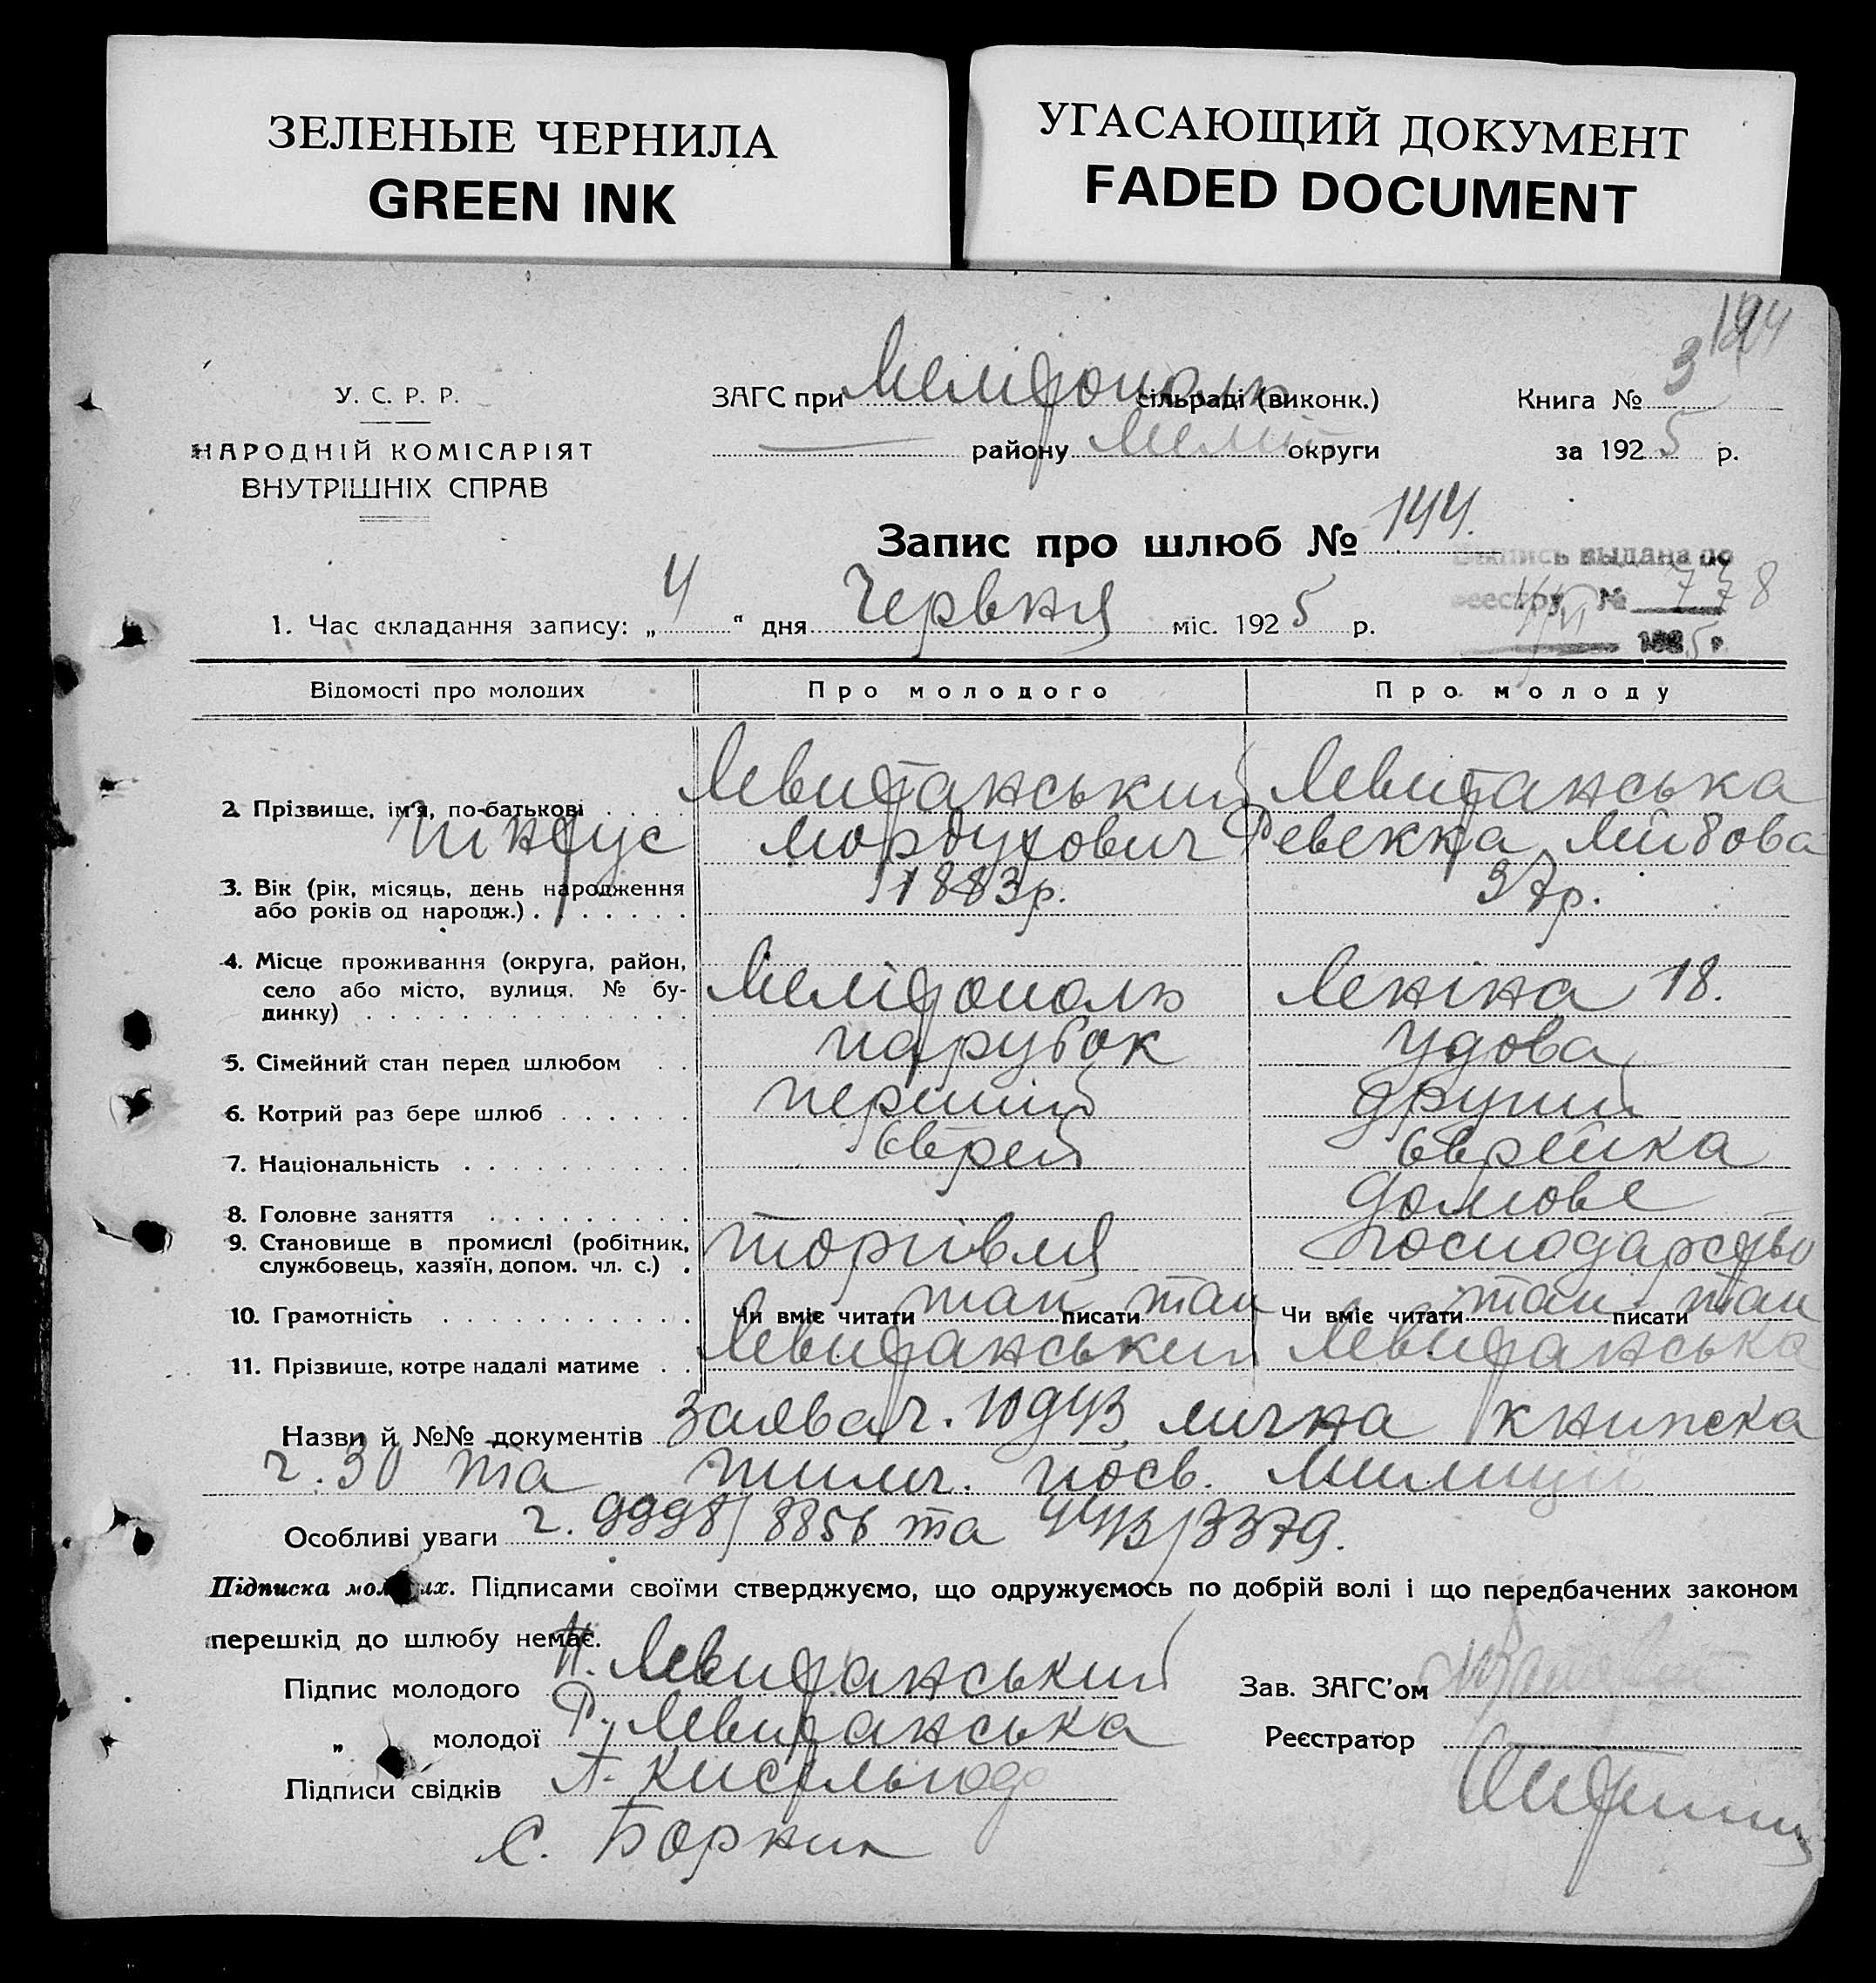 ЗЕЛЕНЫЕ ЧЕРНИЛА
GREEN INK
УГАСАЮЩИЙ ДОКУМЕНТ
FADED DOCUMENT
У. С. Р. Р.
НАРОДНІЙ КОМІСАРІЯТ
ВНУТРІШНІХ СПРАВ
ЗАГС при Мелітополь сільраді (виконк.)
району Меліт округи
Книга № 3
за 1925 р.
Запис про шлюб № 144.
Выпись выдана по
реестру № 778
1925 г.
1. Час складання запису: „4“ дня Червня міс. 1925 р.
Відомості про молодих Про молодого Про молоду
2. Прізвище, ім'я, по-батькові Левитанський Левитанська
Мордухович Ревекка Лейбова
3. Вік (рік, місяць, день народження або років од народж.) 1883р. 37р.
4. Місце проживання (округа, район, село або місто, вулиця, № будинку) Мелітополь Леніна 18.
5. Сімейний стан перед шлюбом парубок удова
6. Котрий раз бере шлюб перший другий
7. Національність Єврей Єврейка
8. Головне заняття домове
9. Становище в промислі (робітник, службовець, хазяїн, допом. чл. с.) торгівля господарство
10. Грамотність Чи вміє читати так писати так Чи вміє читати так писати так
11. Прізвище, котре надалі матиме Левитанський Левитанська
Назви й №№ документів Заява ч. лична книжка
ч. 30 та тимч. посв. Милиції
Особливі уваги ч. 9998/8856 та 443/3379.
Підписка молодих. Підписами своїми стверджуємо, що одружуємось по добрій волі і що передбачених законом
перешкід до шлюбу немає.
Підпис молодого Левитанський
„ молодої Р. Левитанська
Підписи свідків
С.
Зав. ЗАГС'ом
Реєстратор